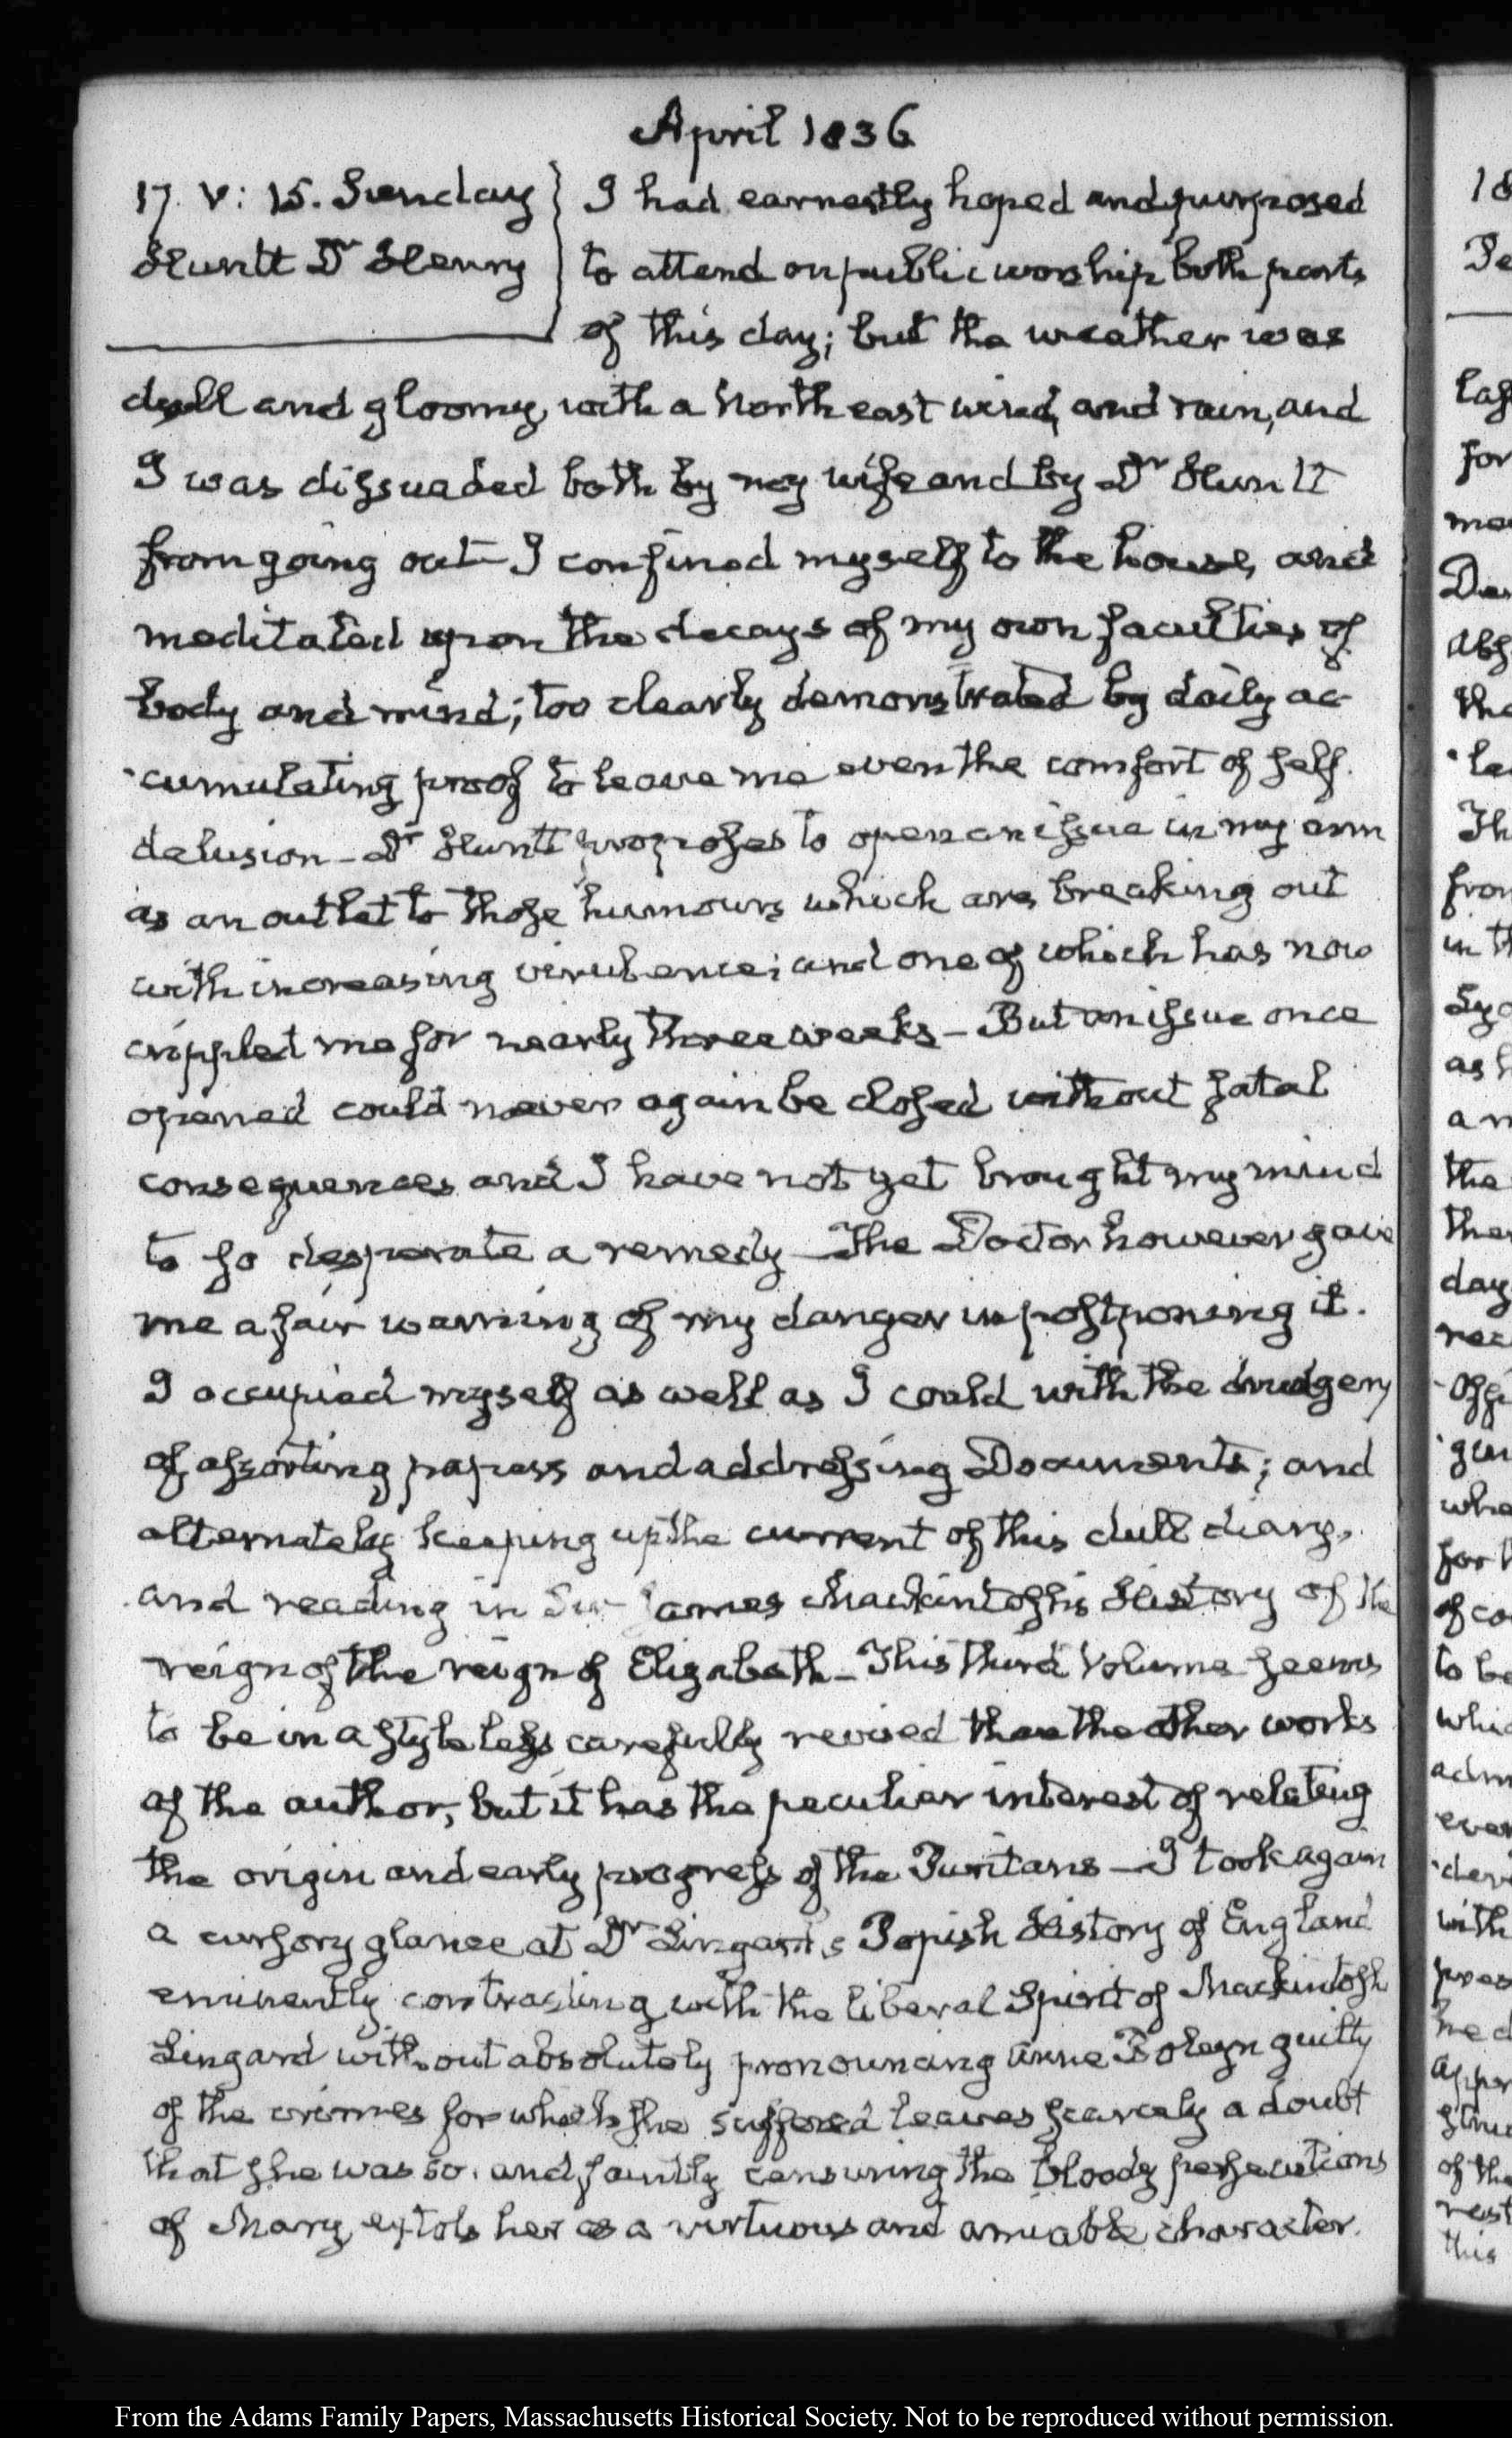 April 1836
17. V: 15. Sunday
Huntt Dr Henry
I had earnestly hoped and purposed
to attend on public worship both parts
of this day; but the weather was
dull and gloomy, with a North east wind, and rain, and
I was dissuaded both by my wife and by Dr Huntt
from going out — I confined myself to the house, and
meditated upon the decays of my own faculties of
body and mind; too clearly demonstrated by daily ac-
cumulating proof to leave me even the comfort of self
delusion — Dr Huntt proposes to open an issue in my arm
as an outlet to those humours which are breaking out
with increasing virulence; and one of which has now
crippled me for nearly three weeks — But an issue once
opened could never again be closed without fatal
consequences and I have not yet brought my mind
to so desperate a remedy — The Doctor however gave
me a fair warning of my danger in postponing it.
I occupied myself as well as I could with the drudgery
of assorting papers and addressing Documents; and
alternately keeping up the current of this dull diary,
and reading in Sir James Mackintosh's History of the
reign of the reign of Elizabeth — This third Volume seems
to be in a style less carefully revised than the other works
of the author, but it has the peculiar interest of relating
the origin and early progress of the Puritans — I took again
a cursory glance at Dr Lingard's Popish History of England
eminently contrasting with the liberal Spirit of Mackintosh
Lingard without absolutely pronouncing Anne Boleyn guilty
of the crimes for which she suffered leaves scarcely a doubt
that she was so. and faintly censuring the bloody persecutions
of Mary, extols her as a virtuous and amiable character.
From the Adams Family Papers, Massachusetts Historical Society. Not to be reproduced without permission.